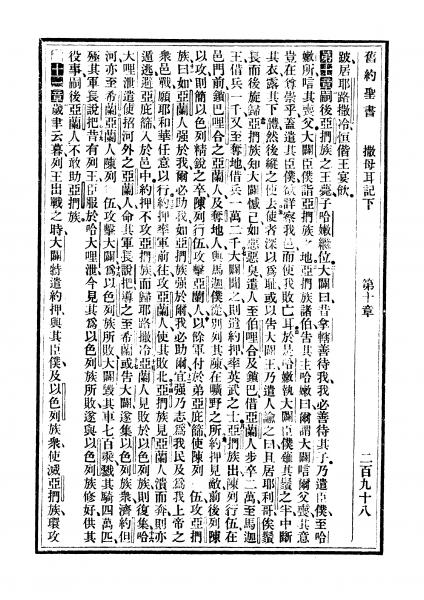 舊約聖書 撒母耳記下 第十章 二百九十八
跛居耶路撒冷恒偕王宴飲
第十章嗣後亞捫族之王薨子哈嫩繼位大闢曰昔拿轄善待我我必善待其子乃遣臣僕至哈
嫩所唁其喪父大闢臣僕詣亞捫族之地亞捫族諸伯告其主哈嫩曰爾謂大闢唁爾父喪其意
豈在尊崇乎蓋遣其臣僕欲詳察我邑而使我敗亡耳於是哈嫩執大闢臣僕薙其鬚之半中斷
其衣露其下體然後縱之使去使者深以爲恥或以告大闢王乃遣人諭之曰且居耶利哥俟鬚
長而後旋歸亞捫族知大闢憾己如惡惡臭遣人至伯哩合及鎖巴借亞蘭人步卒二萬至馬迦
王借兵一千又至奪地借兵一萬二千大闢聞之則遣約押率英武之士亞捫族出陳列行伍在
邑門前鎖巴哩合之亞蘭人及奪地人與馬迦僕從別列其陳在曠野之所約押見敵前後列陳
以攻則簡以色列精銳之卒陳列行伍攻擊亞蘭人以餘軍付於弟亞庇篩使陳列行伍攻亞捫
族曰如亞蘭人强於我爾必助我如亞捫族强於爾我必助爾宜强乃志爲我民及我上帝之
衆邑戰願耶和華任意以行約押率軍前往攻亞蘭人使其敗北亞捫族見亞蘭人潰而奔則亦
遁逃避亞庇篩入於邑中約押不攻亞捫族而歸耶路撒冷亞蘭人見敗於以色列族則復集哈
大哩泄遣使招河外之亞蘭人命其軍長說把導之至希蘭或告大闢遂集以色列族衆濟約但
河亦至希蘭亞蘭人陳列行伍攻擊大闢爲以色列族所敗大闢毀其車七百乘戮其騎四萬匹
殛其軍長說把昔有列王臣服於哈大哩泄今見其爲以色列族所敗遂與以色列族修好供其
役事嗣後亞蘭人不敢助亞捫族
第十一章歲聿云暮列王出戰之時大闢特遣約押與其臣僕及以色列族衆使滅亞捫族環攻